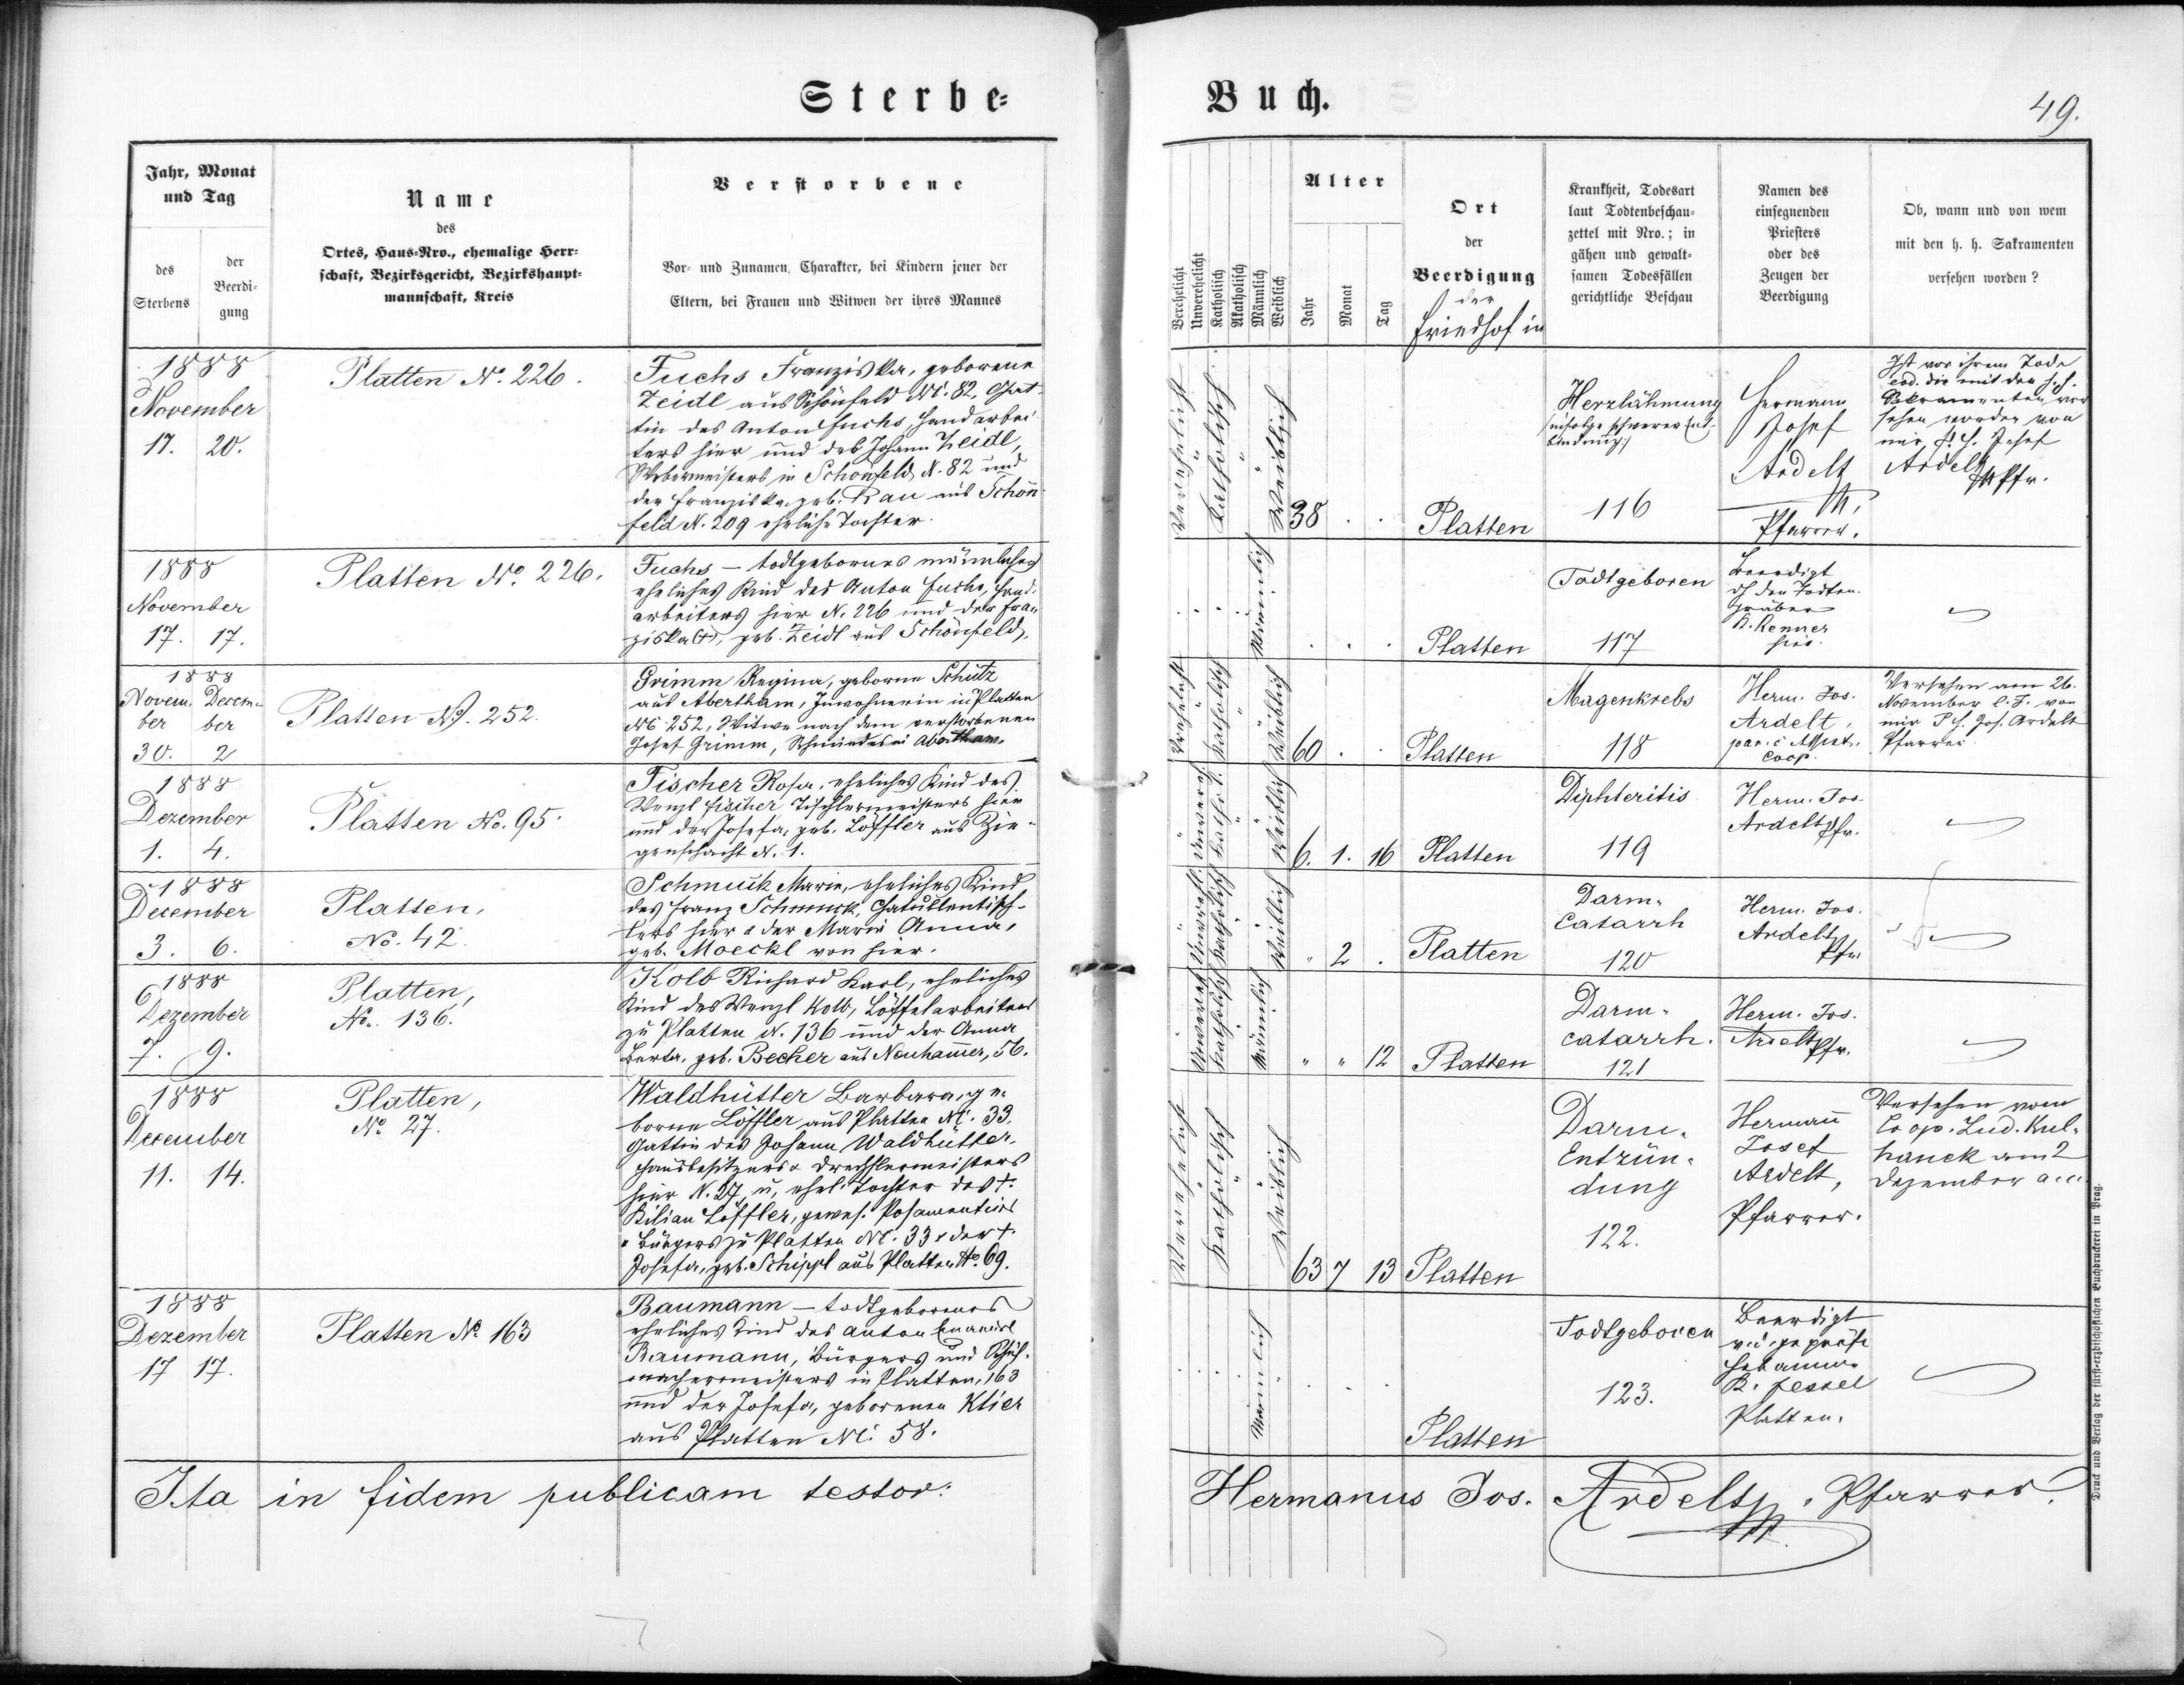 Sterbe-
Buch.
49.
Jahr, Monat
und Tag
des
Sterbens
der
Beerdi-
gung
Name
des
Ortes, Haus-Nro., ehemalige Herr-
schaft, Bezirksgericht, Bezirkshaupt-
mannschaft, Kreis
Verstorbene
Vor- und Zunamen, Charakter, bei Kindern jener der
Eltern, bei Frauen und Witwen der ihres Mannes
Verehelicht
Unverehelicht
Katholisch
Akatholisch
Männlich
Weiblich
Alter
Jahr
Monat
Tag
Ort
der
Beerdigung
der
Friedhof in
Krankheit, Todesart
laut Todtenbeschau-
zettel mit Nro.; in
gähen und gewalt-
samen Todesfällen
gerichtliche Beschau
Namen des
einsegnenden
Priesters
oder des
Zeugen der
Beerdigung
Ob, wann und von wem
mit den h. h. Sakramenten
versehen worden?
1888
November
17. 20.
Platten No. 226.
Fuchs Franziska, geborene
Zeidl aus Schönfeld N. 82, Gat-
tin des Anton Fuchs, Handarbei-
ters hier und des Johann Zeidl,
Webermeisters in Schönfeld N. 82 und
der Franziska geb. Rau aus Schön-
feld N. 209 eheliche Tochter.
Verehelicht
Katholisch
Weiblich
38 . .
Platten
Herzlähmung
infolge schwerer Ent-
bindung
116
Hermann
Josef
Ardelt
Pfarrer.
Ist vor ihrem Tode
eod. die mit den h. h.
Sakramenten ver
sehen worden von
mir, Josef
Ardelt Pfr.
1888
November
17. 17.
Platten No. 226.
Fuchs — todtgebornes männliches
eheliches Kind des Anton Fuchs, Hand-
arbeiters hier N. 226 und der Fran
ziska (+), geb. Zeidl aus Schönfeld.
Männlich
Platten
Todtgeboren
117
Beerdigt
d. den Todten-
gräber
R. Renner
hier.
1888
Novem- Decem-
ber ber
30. 2
Platten No. 252.
Grimm Regina, geborne Schütz
aus Abertham, Inwohnerin in Platten
N 252, Witwe nach dem verstorbenen
Josef Grimm, Schmiedes in Abertham.
Verehelicht
Katholisch
Weiblich
60 . .
Platten
Magenkrebs
118
Herm. Jos.
Ardelt,
Coop.
Versehen am 26.
November l. J. von
mir Jos. Ardelt
Pfarrer
1888
Dezember
1. 4.
Platten No. 95.
Fischer Rosa, eheliches Kind des
Wenzl Fischer Tischlermeisters hier
und der Josefa, geb. Löffler aus Zie-
genschacht N. 1.
Unvereh.
Kathol.
Weiblich
6. 1. 16
Platten
Diphteritis
119
Herm. Jos.
Ardelt Pfr.
1888
December
3. 6.
Platten,
No. 42.
Schmuck Marie, eheliches Kind
des Franz Schmuck, Chatullentisch-
lers hier & der Maria Anna,
geb. Moeckl von hier.
Unvereh.
Katholisch
Weiblich
" 2 .
Platten
Darm-
Catarrh
120
Herm. Jos.
Ardelt
Pfr.
1888
Dezember
7. 9.
Platten,
No. 136.
Kolb Richard Karl, eheliches
Kind des Wenzl Kolb, Löffelarbeiters
zu Platten N. 136 und der Anna
Berta, geb. Becher aus Neuhammer, 56.
Unvereh.
Katholisch
Männlich
" " 12
Platten
Darm-
catarrh.
121
Herm. Jos.
Ardelt Pfr.
1888
December
11. 14.
Platten,
No. 27.
Waldhütter Barbara, ge-
borne Löffler aus Platten N. 33.
Gattin des Johann Waldhütter,
Hausbesitzers & Drechslermeisters
hier N. 27, u. ehel. Tochter des +.
Kilian Löffler, gewes. Posamentiers
& Bürgers zu Platten N. 33 & der +.
Josefa, geb. Schippl aus Platten No. 69.
Verehelicht
Katholisch
Weiblich
63 7 13
Platten
Darm-
Entzün-
dung
122.
Hermann
Josef
Ardelt,
Pfarrer.
Versehen vom
Coop. Lud. Kul-
hanek am 2
Dezember a. c.
1888
Dezember
17 17.
Platten No. 163
Baumann — todtgebornes
eheliches Kind des Anton Emanuel
Baumann, Bürgers und Schuh-
machermeisters in Platten, 163
und der Josefa, geborenen Klier
aus Platten N. 58.
Männlich
Platten
Todtgeboren
123.
Beerdigt
geprüfte
Hebamme
Platten.
Ita in fidem publicam testor:
Hermanus Jos. Ardelt, Pfarrer.
Druck und Verlag der fürst-erzbischöflichen Buchdruckerei in Prag.